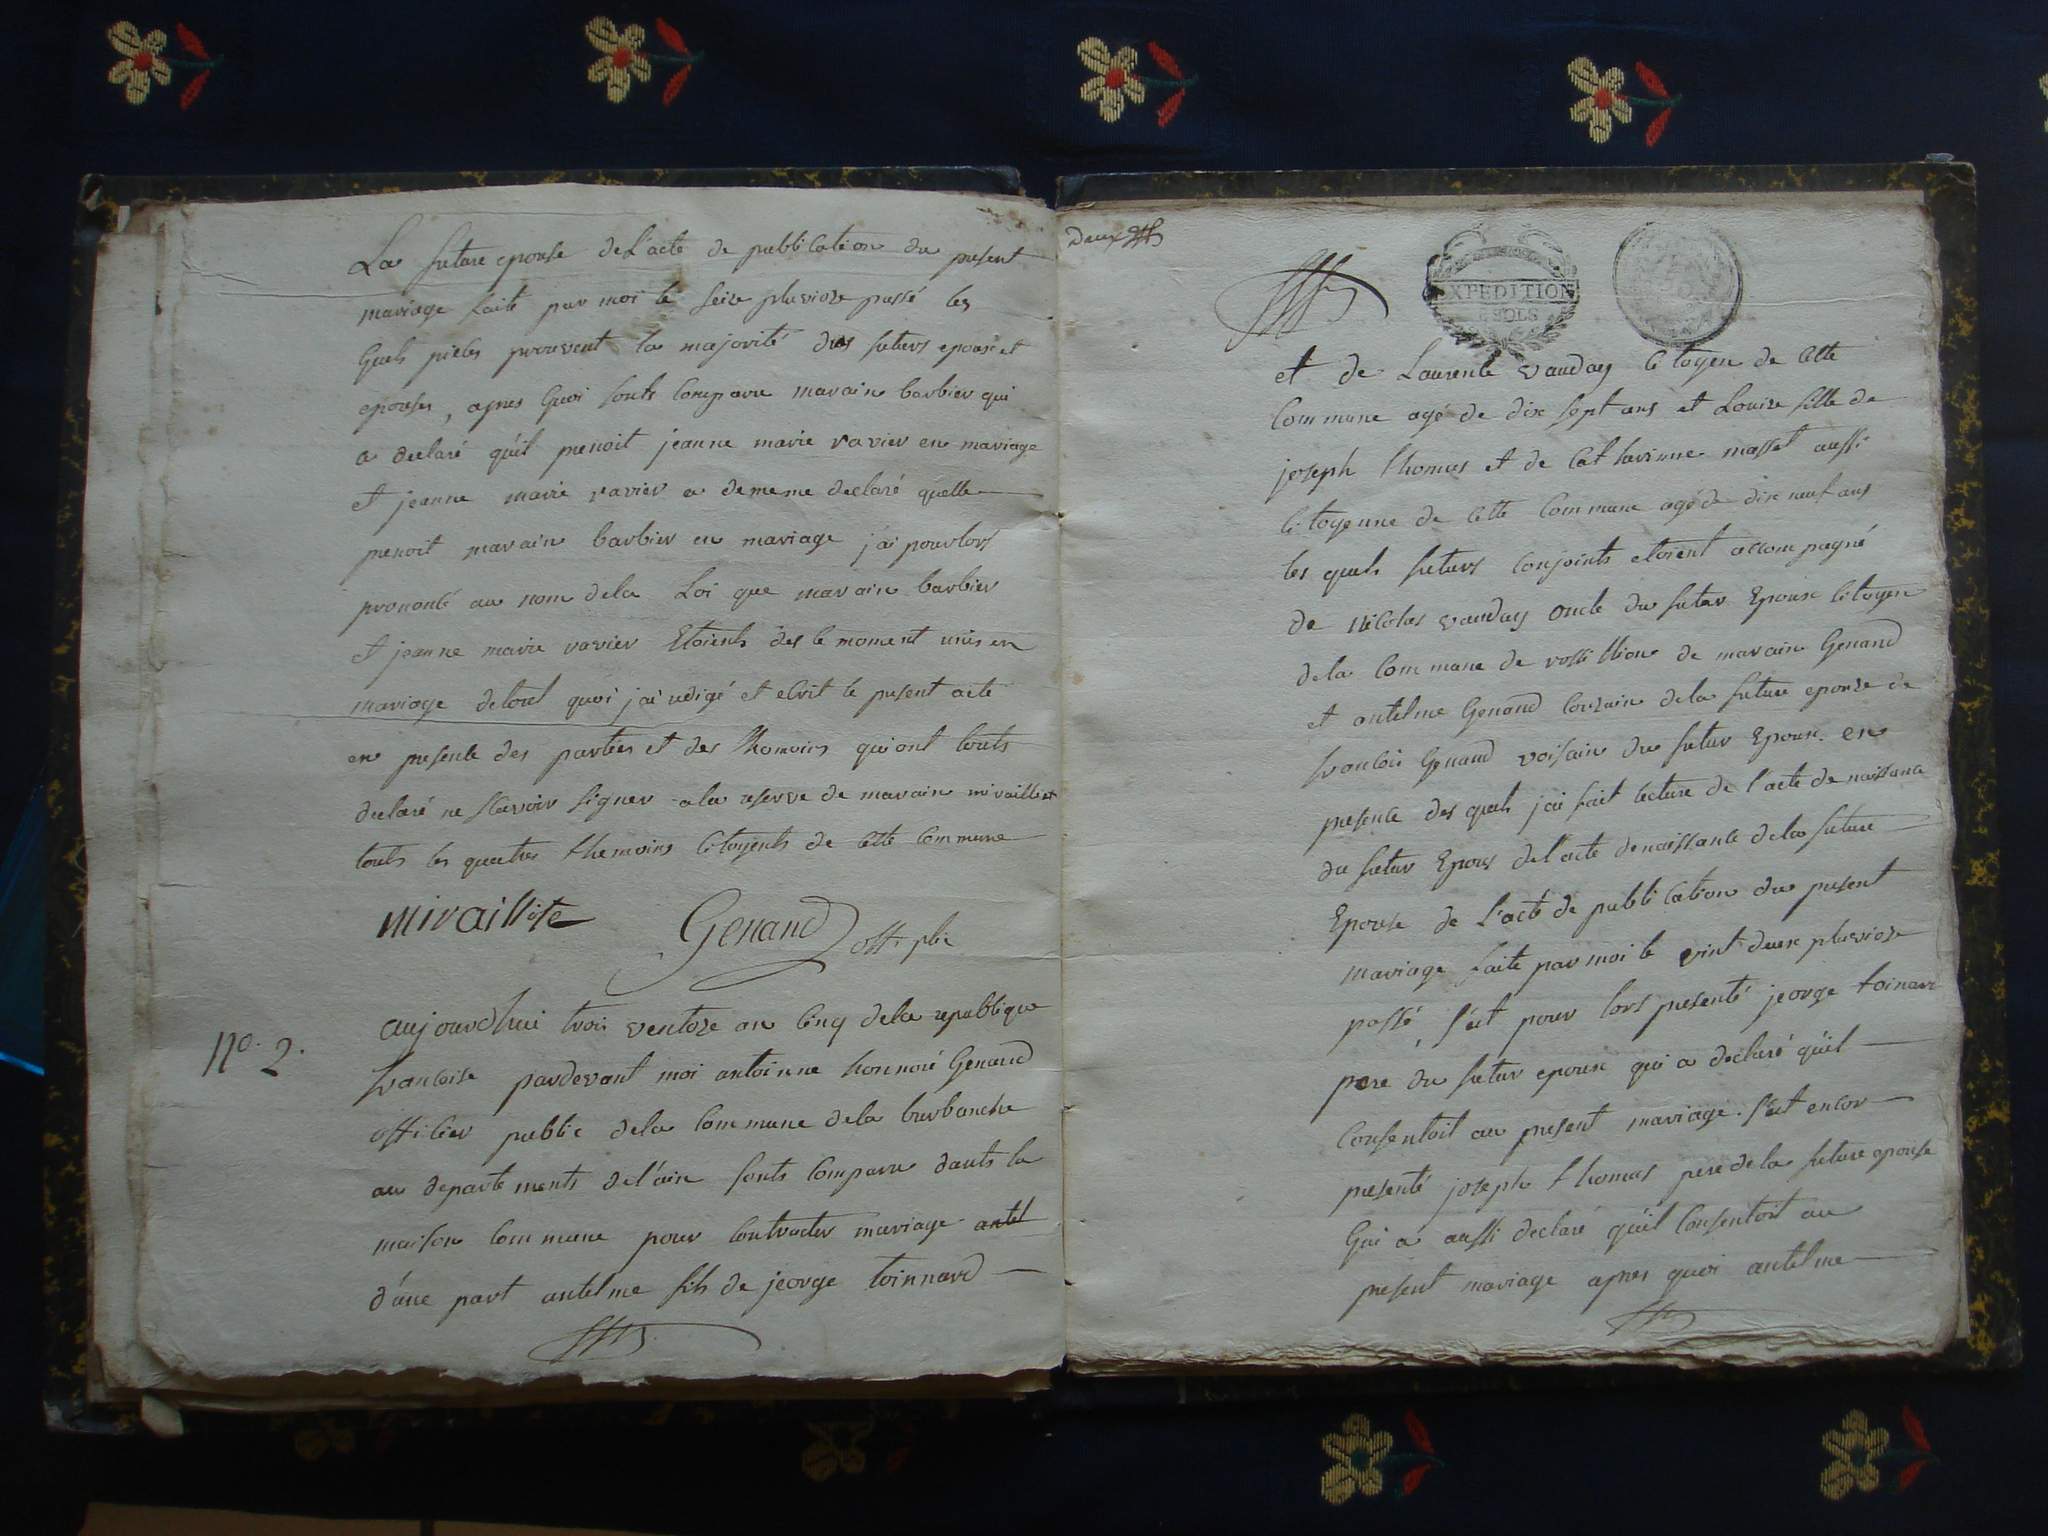 La future epouse de L'acte de publication du present
mariage faite par moi le seize pluvioze passé les
quels pieces prouvent la majorité des futurs epoux et
epouses, apres quoi sonts comparu marain barbier qui
a declaré qu'il prenoit jeanne marie ravier en mariage
et jeanne marie ravier a de meme declaré quelle
prenoit marain barbier en mariage j'ai pour lors
prononcé au nom de la Loi que marain barbier
et jeanne marie ravier Etoients des le moment unis en
mariage de tout quoi j'ai redigé et ecrit le present acte
en presence des parties et des thémoins qui ont touts
declaré ne scavoir signer a la reserve de marain miraillet
touts les quatres themoins citoyents de cette commune
miraillete Genand off. plic
no. 2. aujourdhui trois ventoze an cinq de la republique
francoise pardevant moi antoinne honnoré Genand
officier public de la commune de la burbanche
au departements de l'ain sonts comparu dants la
maison commune pour contracter mariage antel
d'une part antelme fils de jeorge toinnard
deux
EXPEDITION
SOLS
et de Laurence vauday citoyen de cette
commune agé de dix sept ans et Louise fille de
joseph thomas et de Catharinne masset aussi
citoyenne de cette commune agé de dix neuf ans
les quels futurs conjoints etoient accompagné
de nicolas vauday oncle du futur Epoux citoyen
de la commune de rossillion de marain Genand
et antelme Genand couzain de la future epouze de
francois Genand voisain du futur Epoux. en
presence des quels j'ai fait lecture de l'acte de naissance
du futur Epoux de l'acte de naissance de la future
Epouse de l'acte de publication du present
mariage faite par moi le vint deux pluvioze
passé, s'est pour lors presenté jeorge toinard
pere du futur epoux qui a declaré qu'il
consentoit au present mariage. s'est encor
presenté joseph thomas pere de la future epouse
Qui a aussi declaré qu'il consentoit au
present mariage apres quoi antelme